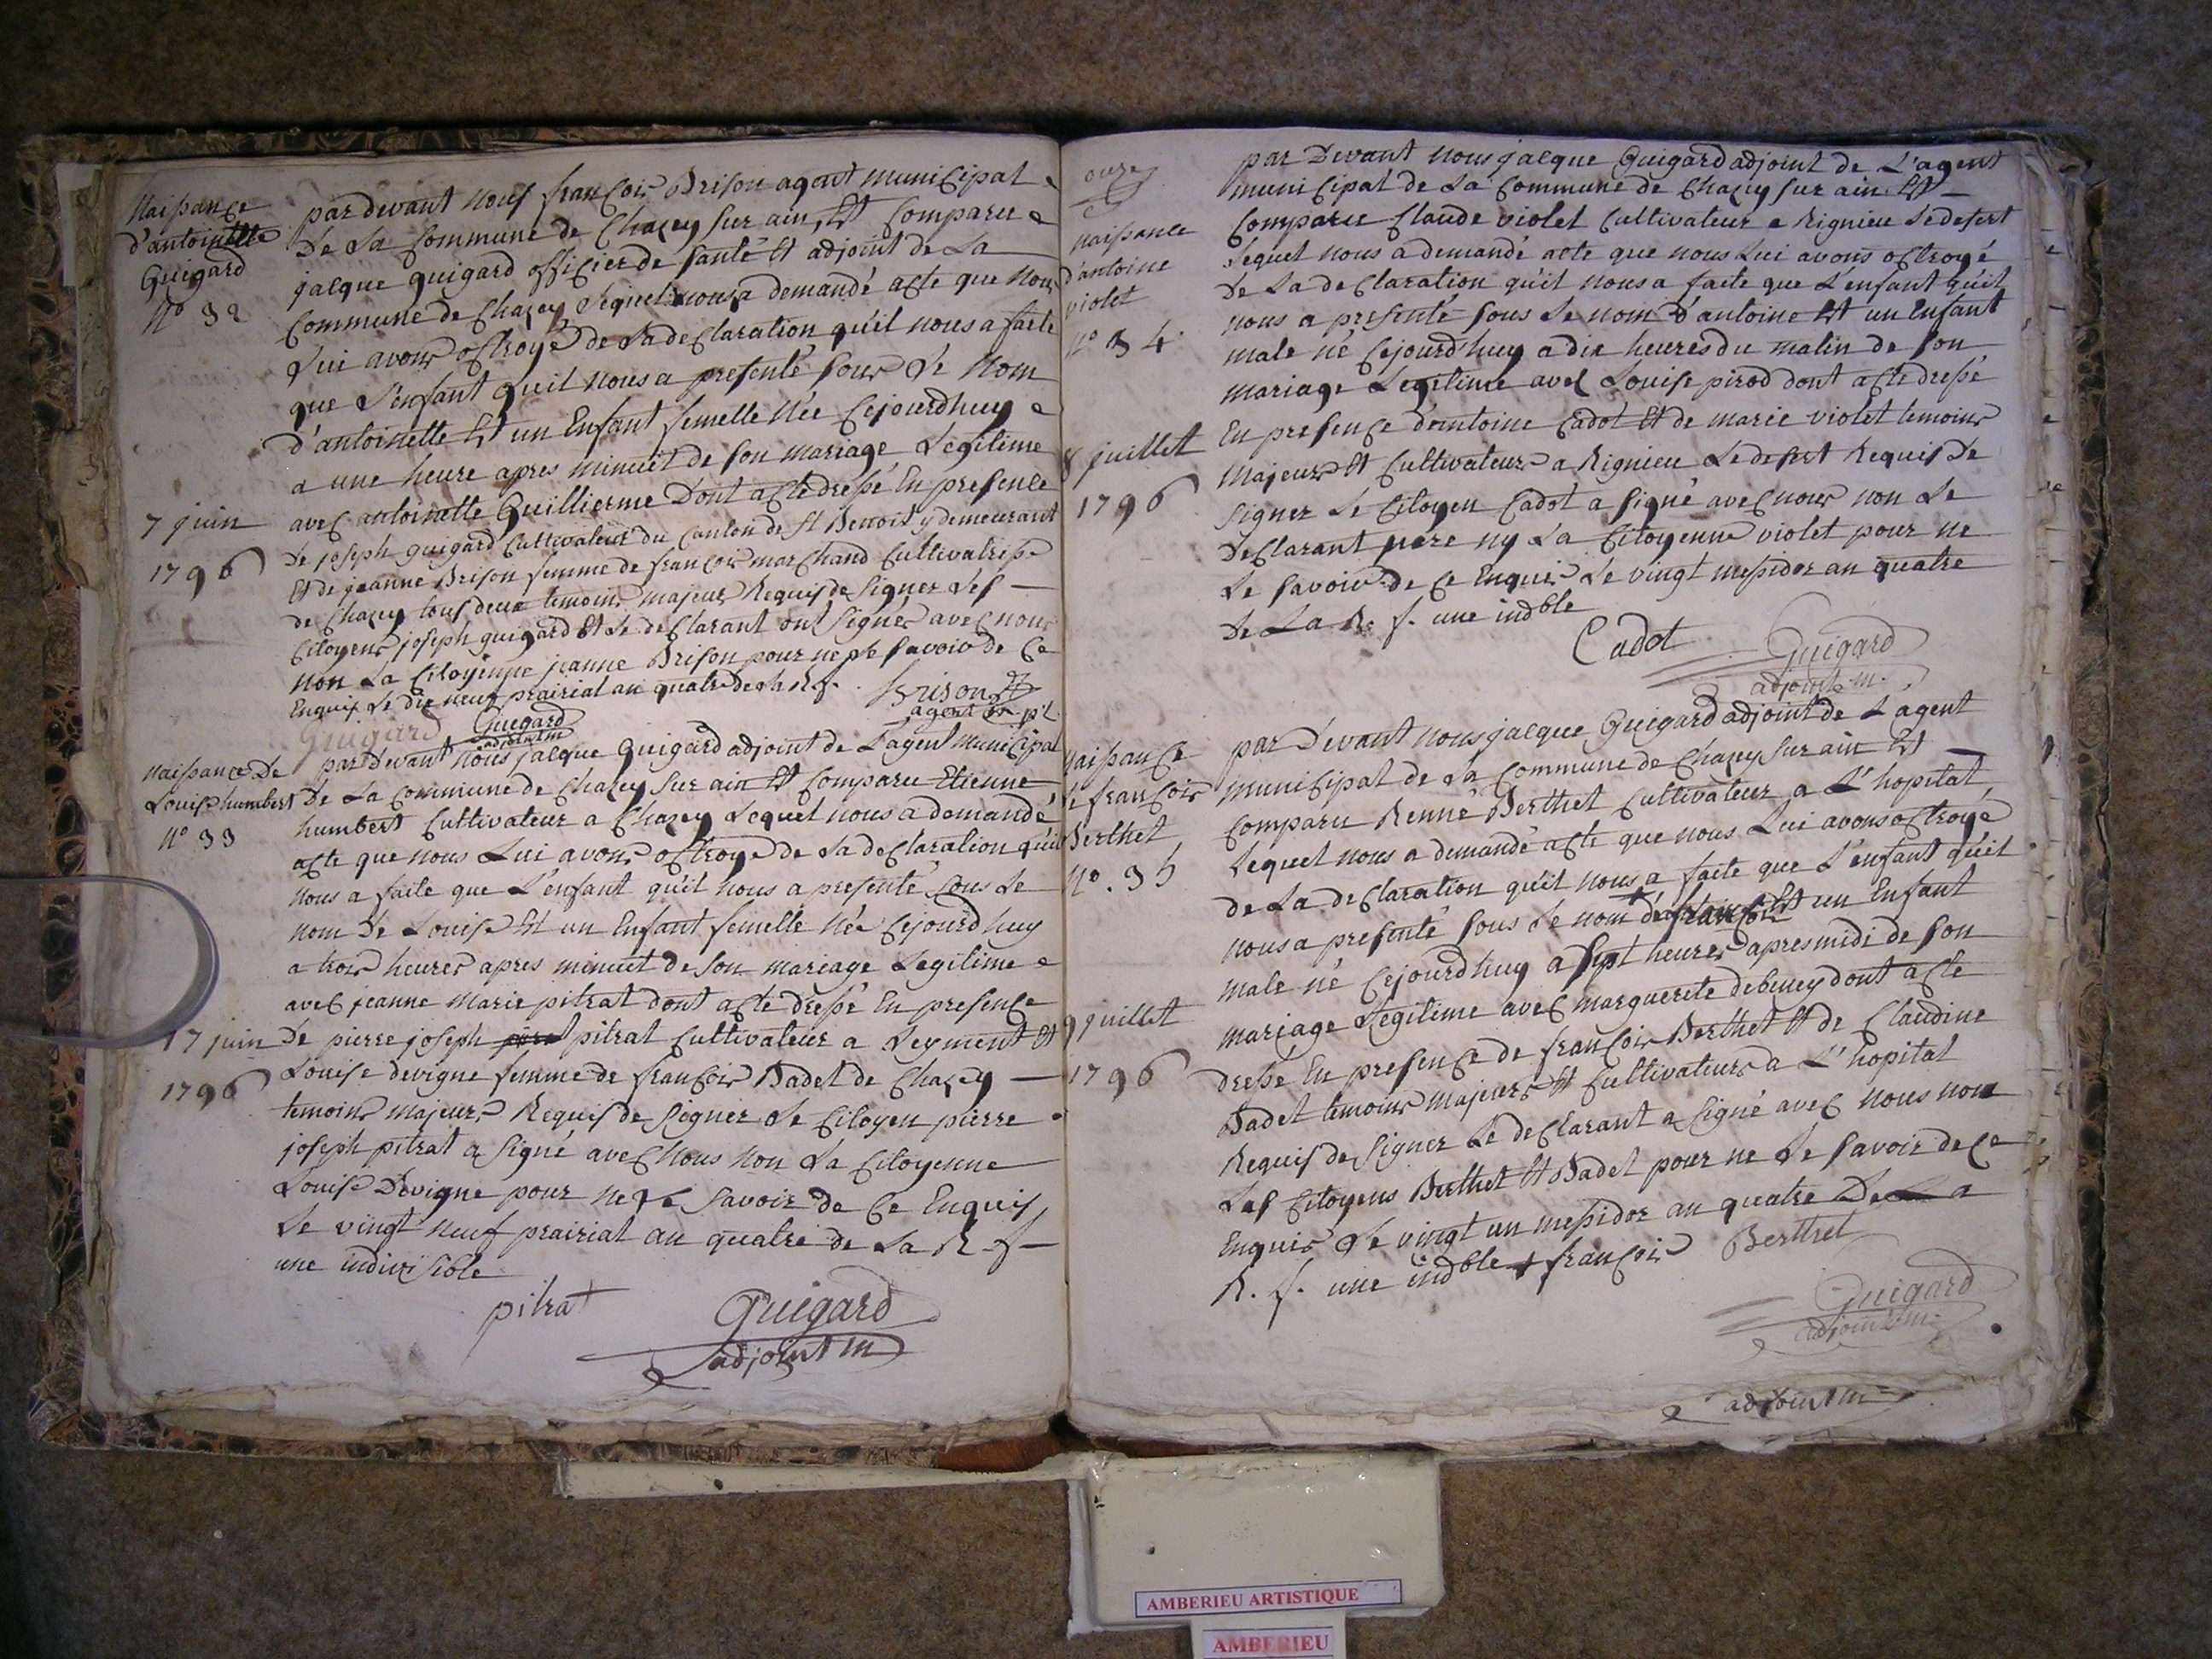 Naissance
d'antoinette
Guigard
N° 32
7 juin
1796
par devant nous francois Brison agent municipal
de La Commune de Chazey sur ain, Est Comparu
jacque guigard officier de santé Et adjoint de La
Commune de Chazey Lequel nous a demandé acte que nous
Lui avons octroyé de Sa declaration qu'il nous a faite
que L'enfant qu'il nous a presenté sous Le Nom
d'antoinette Est un Enfant femelle Née Cejourdhuy
a une heure apres minuit de son mariage Legitime
avec antoinette Guillierme Dont acte dressé En presence
de joseph guigard Cultivateur du Canton de St Benoit y demeurant
Et de jeanne Brison femme de francois marchand Cultivatrisse
de Chazey tous deux temoins majeurs Requis de Signer Les
Citoyens joseph guigard Et Le declarant ont Signés avec nous
non La Citoyenne jeanne Brison pour ne Le Savoir de Ce
Enquis Le dix neuf prairial an quatre de La R. f.
Brison
agent m.pl
Guigard
Guigard
adjoint m
Naissance de
Louise humbert
N° 33
17 juin
1796
par Devant nous jacque Guigard adjoint de L'agent Municipal
de La Commune de Chazey Sur ain Est Comparu Etienne
humbert Cultivateur a Chazey Lequel nous a demandé
acte que nous Lui avons octroyé de Sa declaration qu'il
nous a faite que L'enfant qu'il nous a presenté sous Le
nom De Louise Est un Enfant femelle Née Cejourdhuy
a trois heures apres minuit de Son mariage Legitime
avec jeanne Marie pitrat dont acte dressé En presence
De pierre joseph pitrat Cultivateur a Leyment Et
Louise devigne femme de francois Badet de Chazey
temoins majeurs Requis de Signer Le Citoyen pierre
joseph pitrat a Signé avec Nous Non La Citoyenne
Louise Devigne pour ne Le Savoir de Ce Enquis
Le vingt neuf prairial an quatre de La R. f.
une indivisible
pitrat
Guigard
adjoint m
onze
Naissance
d'antoine
violet
N° 34
8 juillet
1796
par Devant nous jacque Guigard adjoint de L'agent
municipal de La Commune de Chazey sur ain Est
Comparu Claude violet Cultivateur a Rignieu Le desert
Lequel nous a demandé acte que nous Lui avons octroyé
de Sa declaration qu'il nous a faite que L'enfant qu'il
nous a presenté sous Le nom d'antoine Est un Enfant
male né Cejourd'huy a dix heures du matin de son
mariage Legitime avec Louise pirod dont acte dressé
En presence d'antoine Cadot Et de marie violet temoins
Majeurs Et Cultivateurs a Rignieu Le desert Requis de
Signer Le Citoyen Cadot a Signé avec nous non Le
Declarant pere ny La Citoyenne violet pour ne
Le Savoir de Ce Enquis Le vingt messidor an quatre
de La R. f. une indble
Cadot
Guigard
adjoint m.
Naissance
de francois
Berthet
N°. 35
9 juillet
1796
par Devant nous jacque Guigard adjoint de L'agent
municipal de La Commune de Chazey Sur ain Est
Comparu Renné Berthet Cultivateur a L'hopital
Lequel nous a demandé acte que nous Lui avons octroyé
de La declaration qu'il nous a faite que L'enfant qu'il
nous a presenté sous Le nom de francois Est un Enfant
male né Cejourdhuy a Sept heures apres midi de son
mariage Legitime avec marguerite debeney dont acte
dressé En presence de francois Berthet Et de Claudine
Badet temoins majeurs Et Cultivateurs a L'hopital
Requis de Signer Le declarant a Signé avec nous non
Les Citoyens Berthet Et Badet pour ne Le Savoir de Ce
Enquis Le vingt un messidor an quatre De La
R. f. une indble + francois Berthet
Guigard
adjoint m.
adjoint m
AMBERIEU ARTISTIQUE
AMBERIEU